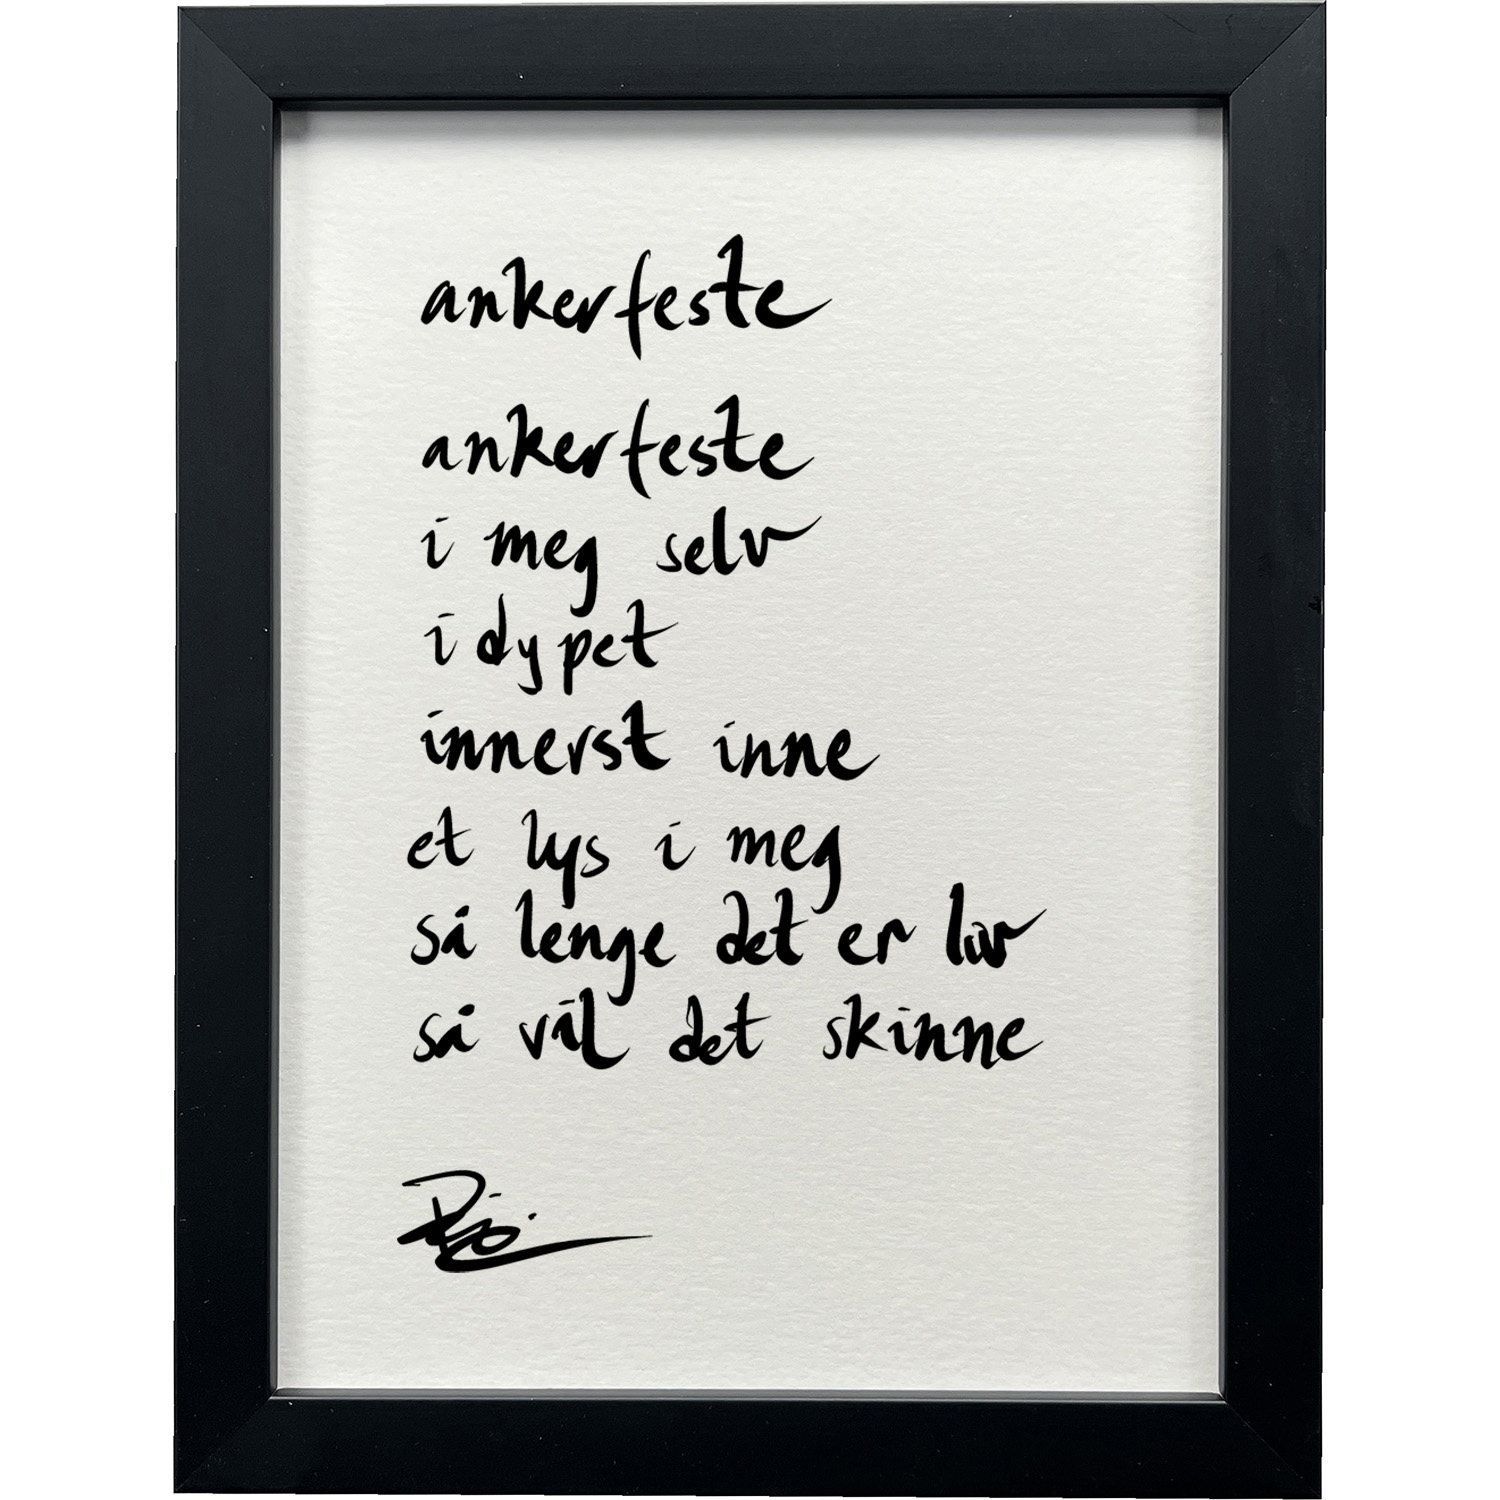 ankerfeste
ankerfeste
i meg selv
i dypet
innerst inne
et lys i meg
så lenge det er liv
så vil det skinne